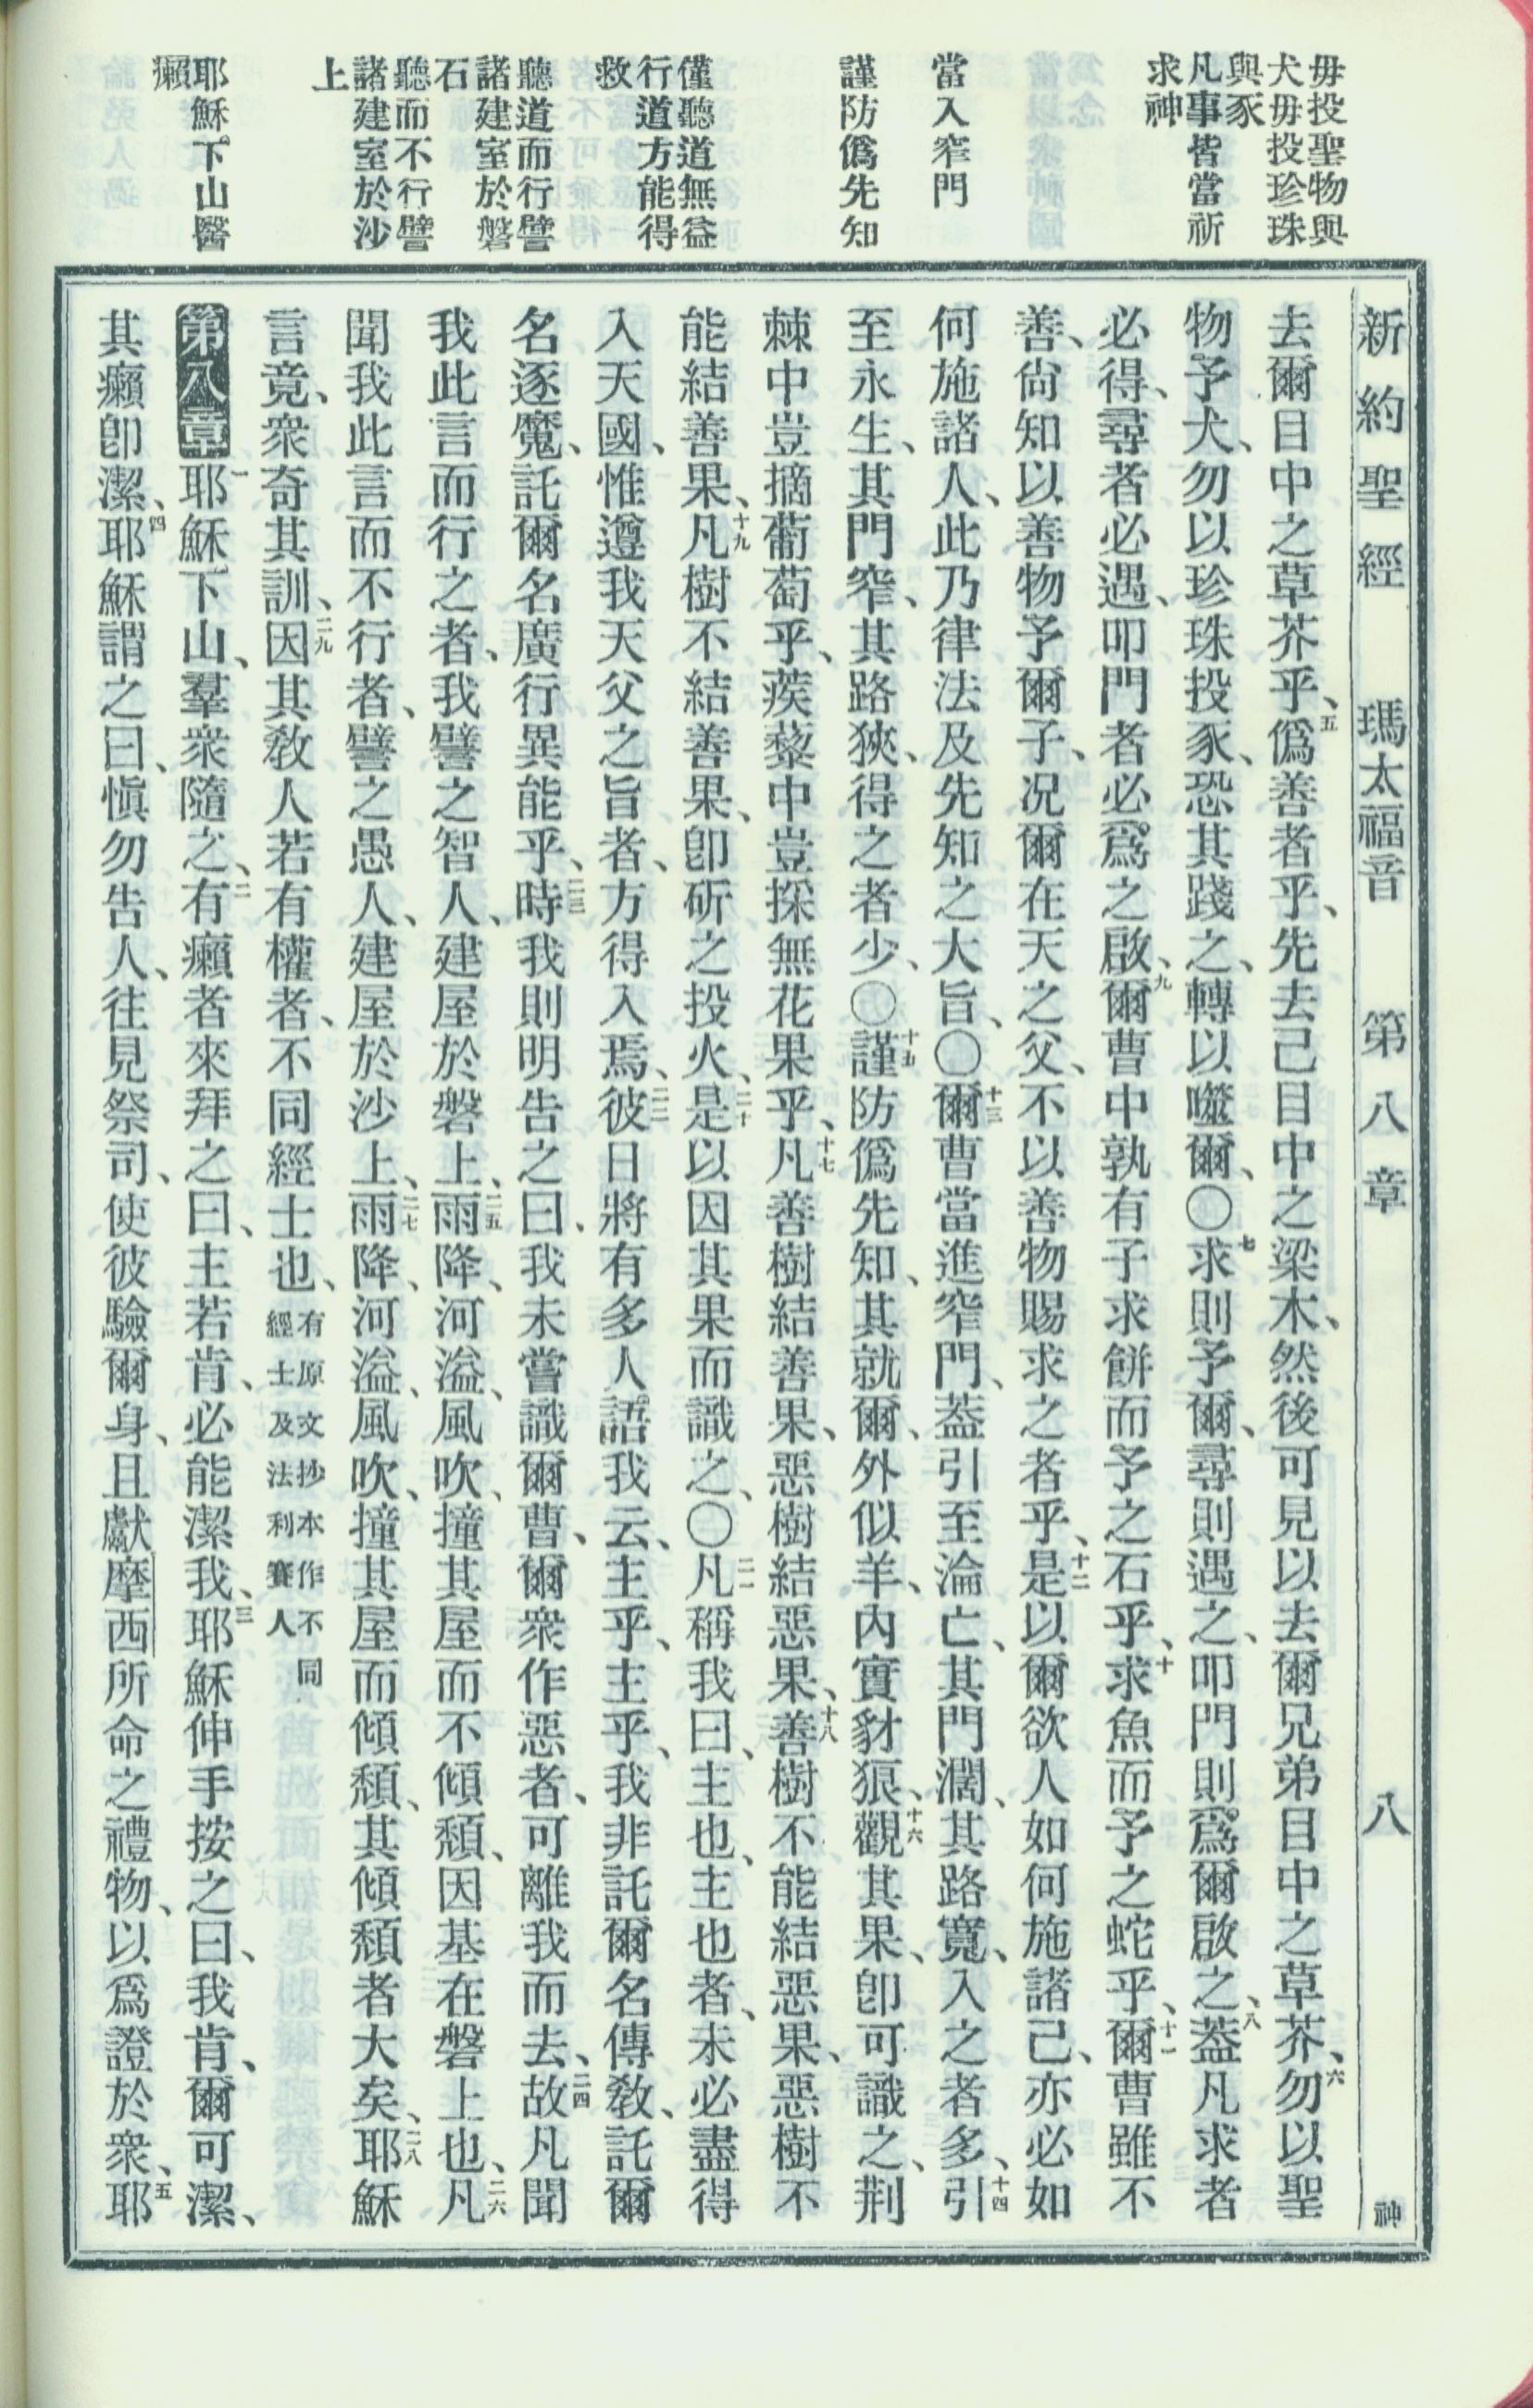 新約聖經 瑪太福音 第八章 八 神
毋投聖物與
犬毋投珍珠
與豕
凡事皆當祈
求神
當入窄門
謹防僞先知
僅聽道無益
行道方能得
救
聽道而行譬
諸建室於磐
石
聽而不行譬
諸建室於沙
上
耶穌下山醫
癩
去爾目中之草芥乎、五僞善者乎、先去己目中之梁木、然後可見以去爾兄弟目中之草芥、六勿以聖
物予犬、勿以珍珠投豕、恐其踐之、轉以噬爾、〇七求則予爾、尋則遇之、叩門則爲爾啟之、八蓋凡求者
必得、尋者必遇、叩門者必爲之啟、九爾曹中孰有子求餅而予之石乎、十求魚而予之蛇乎、十一爾曹雖不
善、尙知以善物予爾子、况爾在天之父、不以善物賜求之者乎、十二是以爾欲人如何施諸己、亦必如
何施諸人、此乃律法及先知之大旨、〇十三爾曹當進窄門、蓋引至淪亡、其門濶、其路寬、入之者多、十四引
至永生、其門窄、其路狹、得之者少、〇十五謹防僞先知、其就爾、外似羊、內實豺狼、十六觀其果、卽可識之、荆
棘中豈摘葡萄乎、蒺藜中豈採無花果乎、十七凡善樹結善果、惡樹結惡果、十八善樹不能結惡果、惡樹不
能結善果、十九凡樹不結善果、卽斫之投火、二十是以因其果而識之、〇二一凡稱我曰、主也、主也者、未必盡得
入天國、惟遵我天父之旨者、方得入焉、二二彼日將有多人語我云、主乎、主乎、我非託爾名傳敎、託爾
名逐魔、託爾名廣行異能乎、二三時我則明告之曰、我未嘗識爾曹、爾衆作惡者、可離我而去、二四故凡聞
我此言而行之者、我譬之智人、建屋於磐上、二五雨降、河溢、風吹、撞其屋而不傾頹、因基在磐上也、二六凡
聞我此言而不行者、譬之愚人、建屋於沙上、二七雨降、河溢、風吹、撞其屋而傾頹、其傾頹者大矣、二八耶穌
言竟、衆奇其訓、二九因其敎人若有權者、不同經士也、有原文抄本作不同經士及法利賽人
第八章 一耶穌下山、羣衆隨之、二有癩者來拜之曰、主若肯、必能潔我、三耶穌伸手按之曰、我肯、爾可潔、
其癩卽潔、四耶穌謂之曰、愼勿告人、往見祭司、使彼驗爾身、且獻摩西所命之禮物、以爲證於衆、五耶